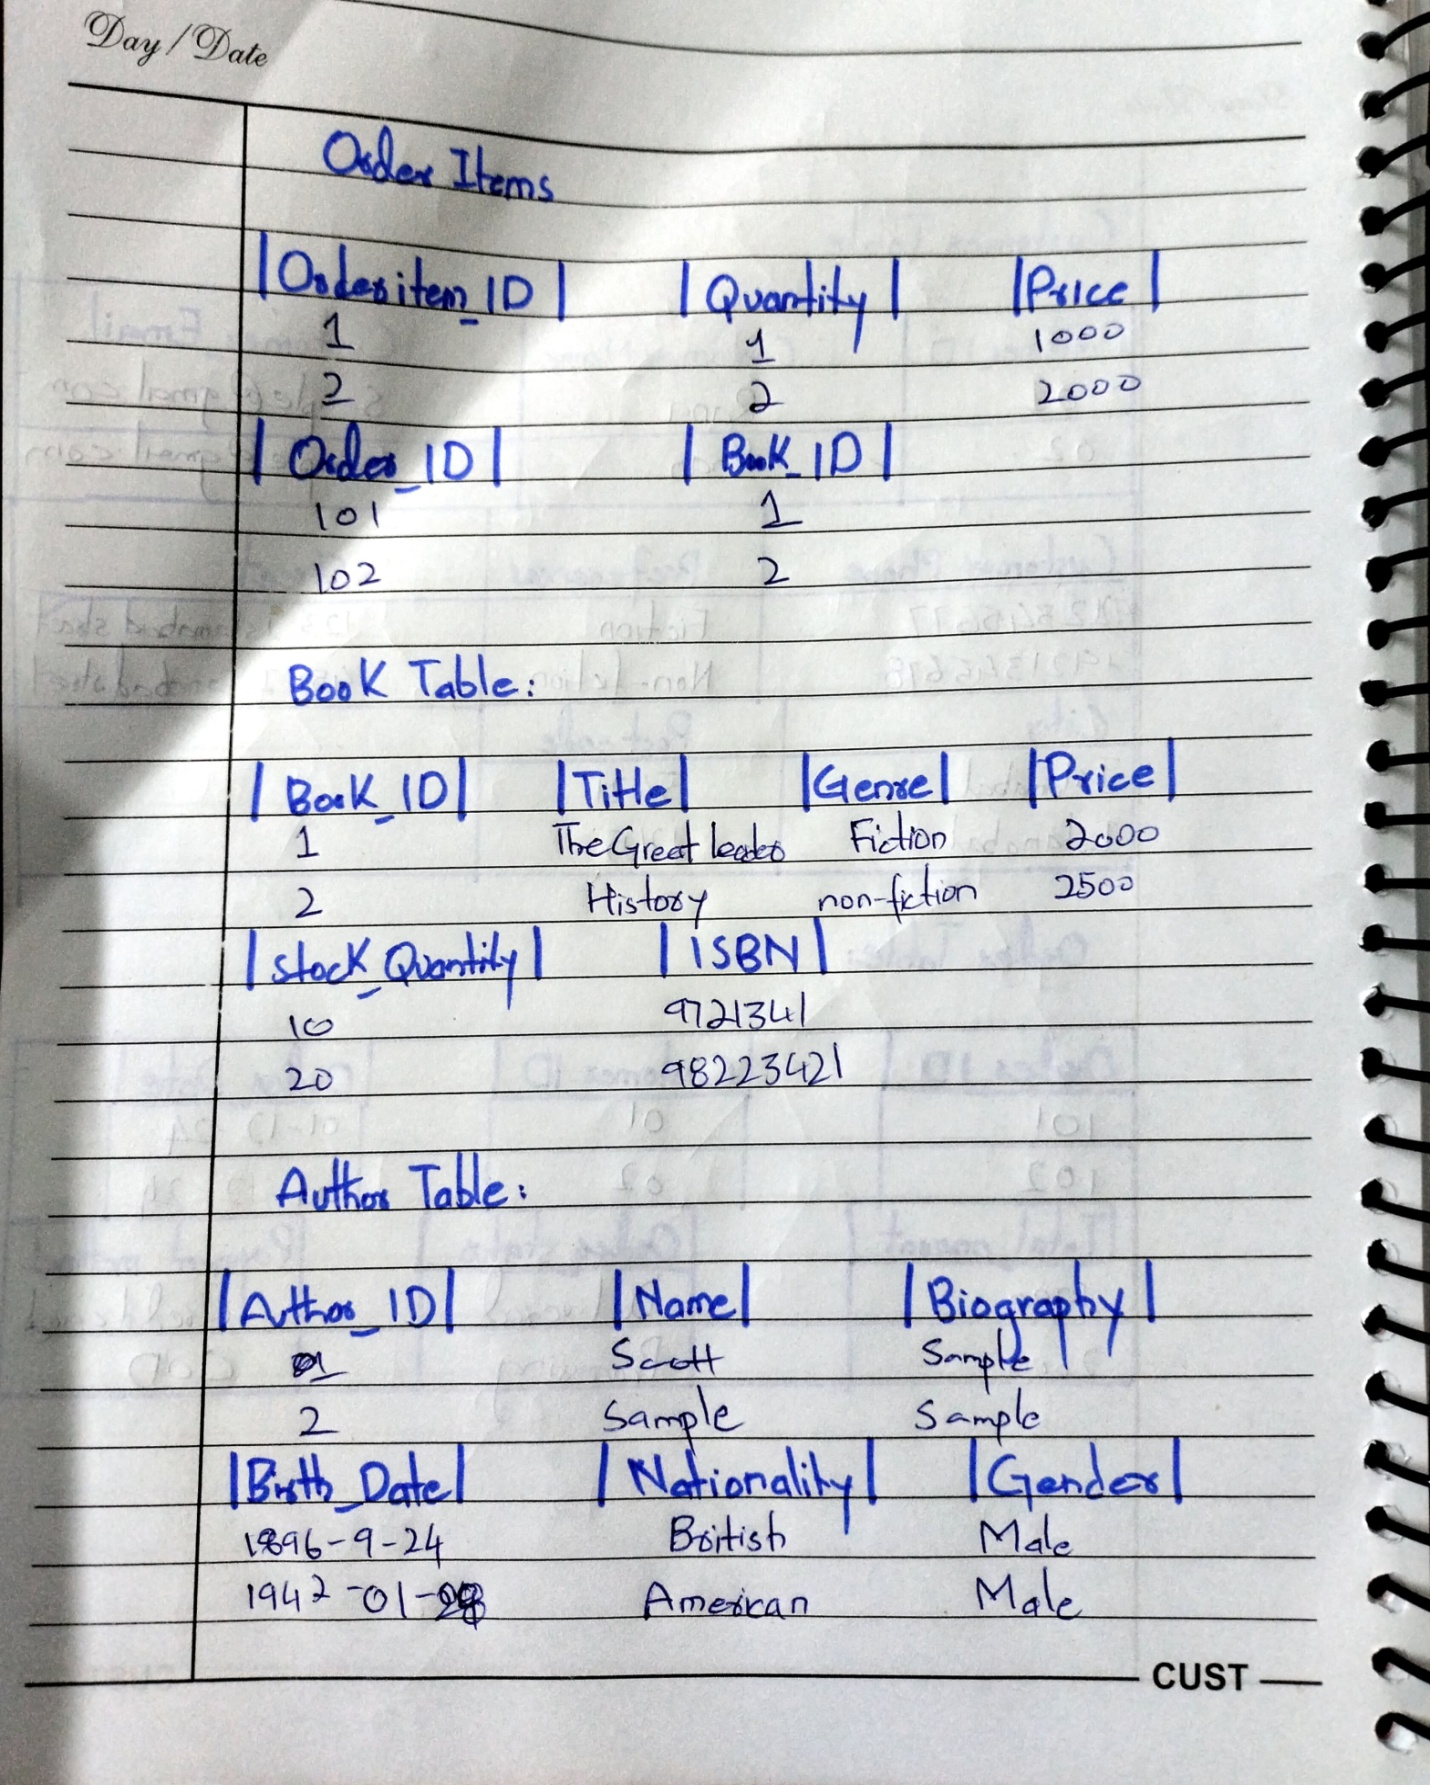 Day/Date
Order Items
|Orderitem_ID| |Quantity| |Price|
1 1 1000
2 2 2000
|Order_ID| |Book_ID|
101 1
102 2
Book Table:
|Book_ID| |Title| |Genre| |Price|
1 The Great leader Fiction 2000
2 History non-fiction 2500
|Stock_Quantity| |ISBN|
10 9721341
20 98223421
Author Table:
|Author_ID| |Name| |Biography|
1 Scott Sample
2 Sample Sample
|Birth_Date| |Nationality| |Gender|
1896-9-24 British Male
1942-01- American Male
CUST